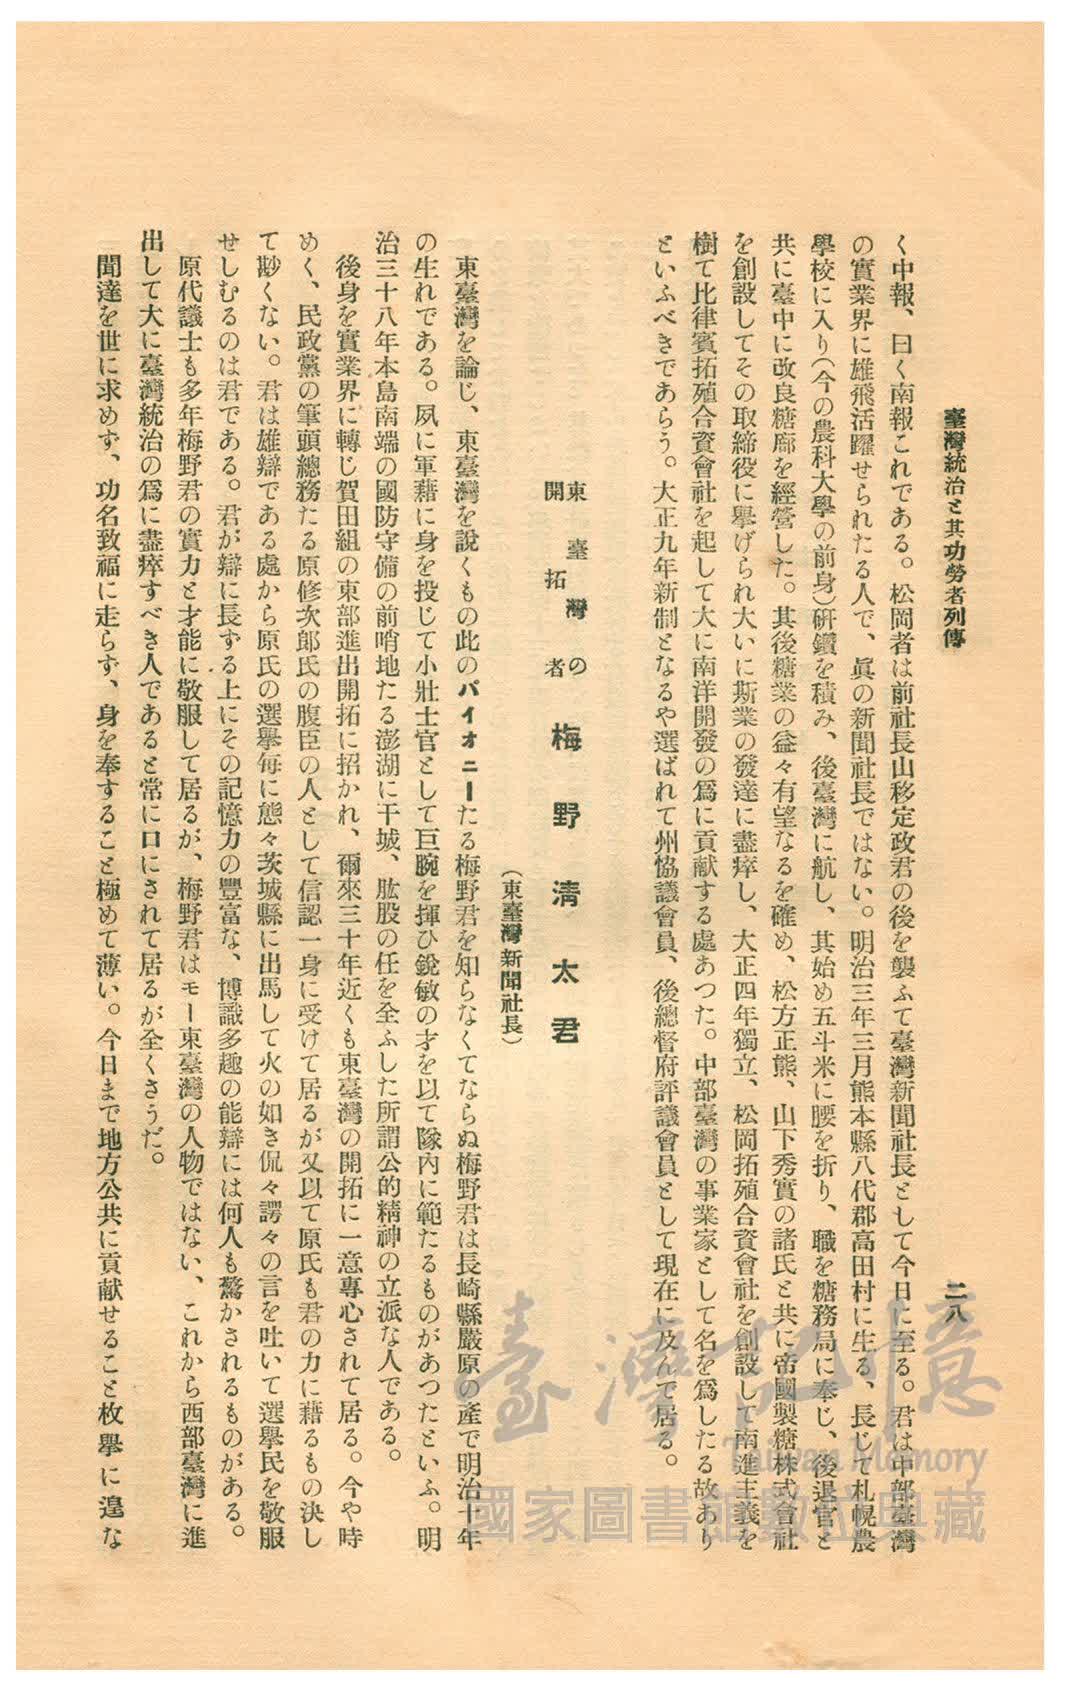 臺灣統治と其功勞者列傳
二八
く中報、曰く南報これである。松岡者は前社長山移定政君の後を襲ふて臺灣新聞社長として今日に至る。君は中部臺灣
の實業界に雄飛活躍せられたる人で、眞の新聞社長ではない。明治三年三月熊本縣八代郡高田村に生る、長じて札幌農
學校に入り(今の農科大學の前身)硏鑽を積み、後臺灣に航し、其始め五斗米に腰を折り、職を糖務局に奉じ、後退官と
共に臺中に改良糖廍を經營した。其後糖業の益々有望なるを確め、松方正熊、山下秀實の諸氏と共に帝國製糖株式會社
を創設してその取締役に擧げられ大いに斯業の發達に盡瘁し、大正四年獨立、松岡拓殖合資會社を創設して南進主義を
樹て比律賓拓殖合資會社を起して大に南洋開發の爲に貢獻する處あつた。中部臺灣の事業家として名を爲したる故あり
といふべきであらう。大正九年新制となるや選ばれて州協議會員、後總督府評議會員として現在に及んで居る。
東臺灣の
開拓者
梅野淸太君
(東臺灣新聞社長)
東臺灣を論じ、東臺灣を說くもの此のパイオニーたる梅野君を知らなくてならぬ梅野君は長崎縣嚴原の產で明治十年
の生れである。夙に軍藉に身を投じて小壯士官として巨腕を揮ひ銳敏の才を以て隊內に範たるものがあつたといふ。明
治三十八年本島南端の國防守備の前哨地たる澎湖に干城、肱股の任を全ふした所謂公的精神の立派な人である。
後身を實業界に轉じ賀田組の東部進出開拓に招かれ、爾來三十年近くも東臺灣の開拓に一意專心されて居る。今や時
めく、民政黨の筆頭總務たる原修次郞氏の腹臣の人として信認一身に受けて居るが又以て原氏も君の力に藉るもの決し
て尠くない。君は雄辯である處から原氏の選擧每に態々茨城縣に出馬して火の如き侃々諤々の言を吐いて選擧民を敬服
せしむるのは君である。君が辯に長ずる上にその記憶力の豐富な、博識多趣の能辯には何人も驚かされるものがある。
原代議士も多年梅野君の實力と才能に敬服して居るが、梅野君はモー東臺灣の人物ではない、これから西部臺灣に進
出して大に臺灣統治の爲に盡瘁すべき人であると常に口にされて居るが全くさうだ。
聞達を世に求めず、功名致福に走らず、身を奉ずること極めて薄い。今日まで地方公共に貢獻せること枚擧に遑な
臺灣記憶
Taiwan Memory
國家圖書館數位典藏